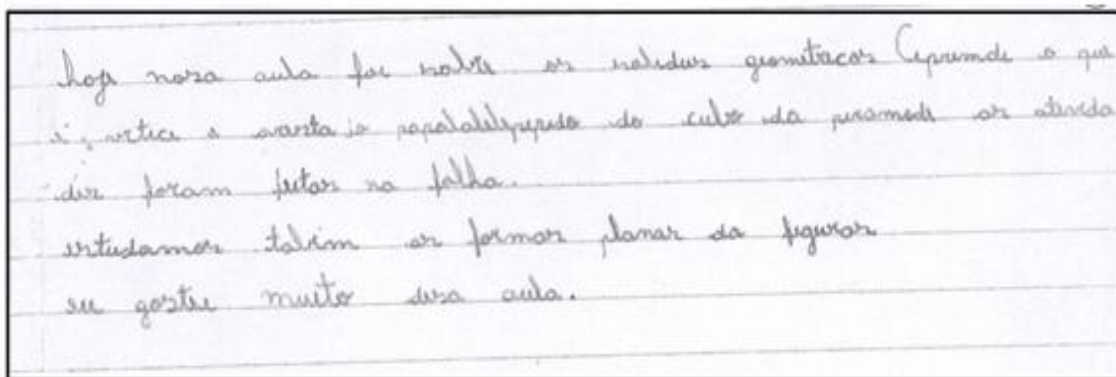 hoje nosa aula foi sobre os solidus geometricos (aprende o que
é, vrtice e aresta io papalalelepepido do cubo da piramede as ativida
dis foram feitas na folha.
estudamos talbim as formas planas da figuras
eu gostei muito desa aula.